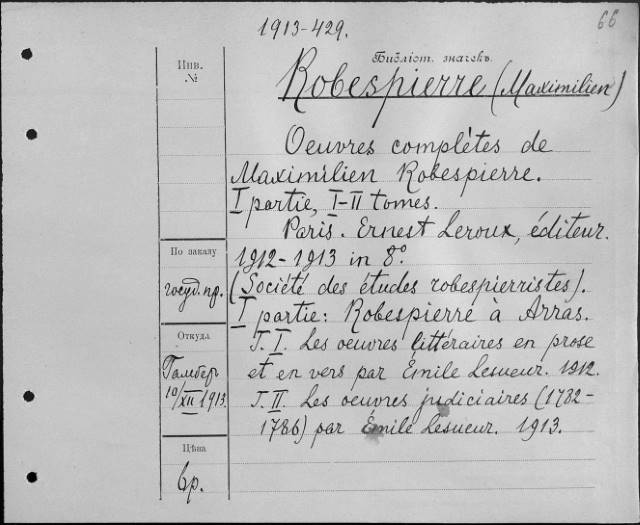 1913-429.
66
Инв.
№
Библіот. значекъ.
Robespierre (Maximilien)
Oeuvres complètes de
Maximilien Robespierre.
I partie, I-II tomes.
Paris. Ernest Leroux, éditeur.
1912-1913 in 8º.
(Société des études robespierristes).
I partie: Robespierre à Arras.
T. I. Les oeuvres littéraires en prose
et en vers par Émile Lesueur. 1912.
T. II. Les oeuvres judiciaires (1782-
1786) par Émile Lesueur. 1913.
По заказу
госуд. пр.
Откуда
Гамбер
10/XII 1913.
Цѣна
р.